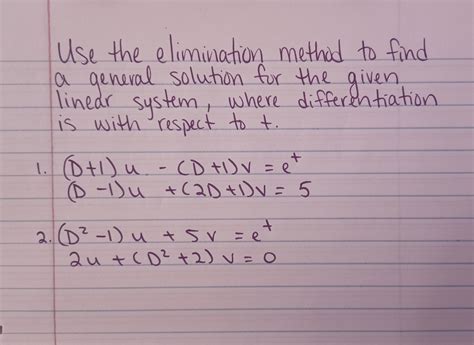 Use the elimination method to find
a general solution for the given
linear system, where differentiation
is with respect to t.
1. (D+1)u - (D+1)v = e^t
(D-1)u + (2D+1)v = 5
2. (D²-1)u + 5v = e^t
2u + (D²+2)v = 0